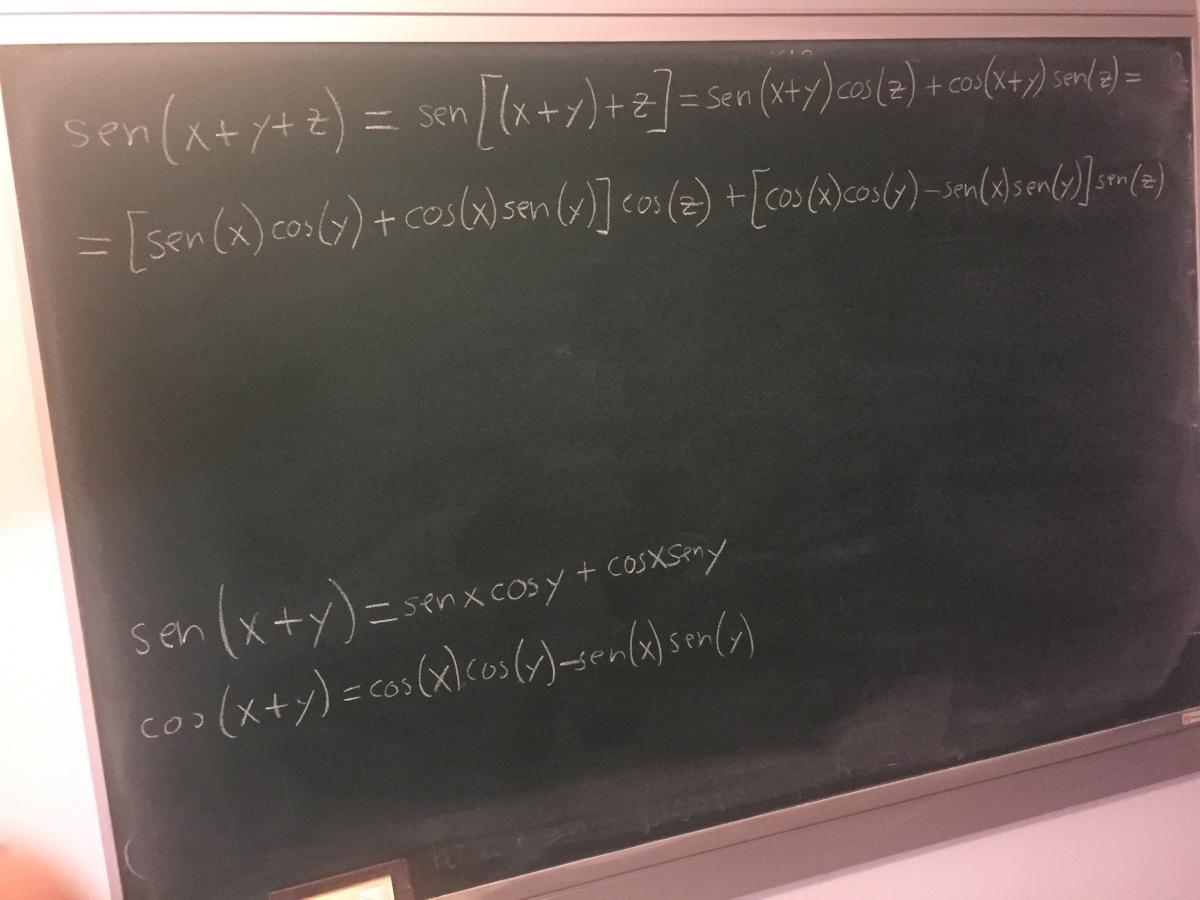 sen(x+y+z) = sen[(x+y)+z] = sen(x+y)cos(z) + cos(x+y)sen(z) =
= [sen(x)cos(y) + cos(x)sen(y)]cos(z) + [cos(x)cos(y) - sen(x)sen(y)]sen(z)
sen(x+y) = senxcosy + cosxseny
cos(x+y) = cos(x)cos(y) - sen(x)sen(y)